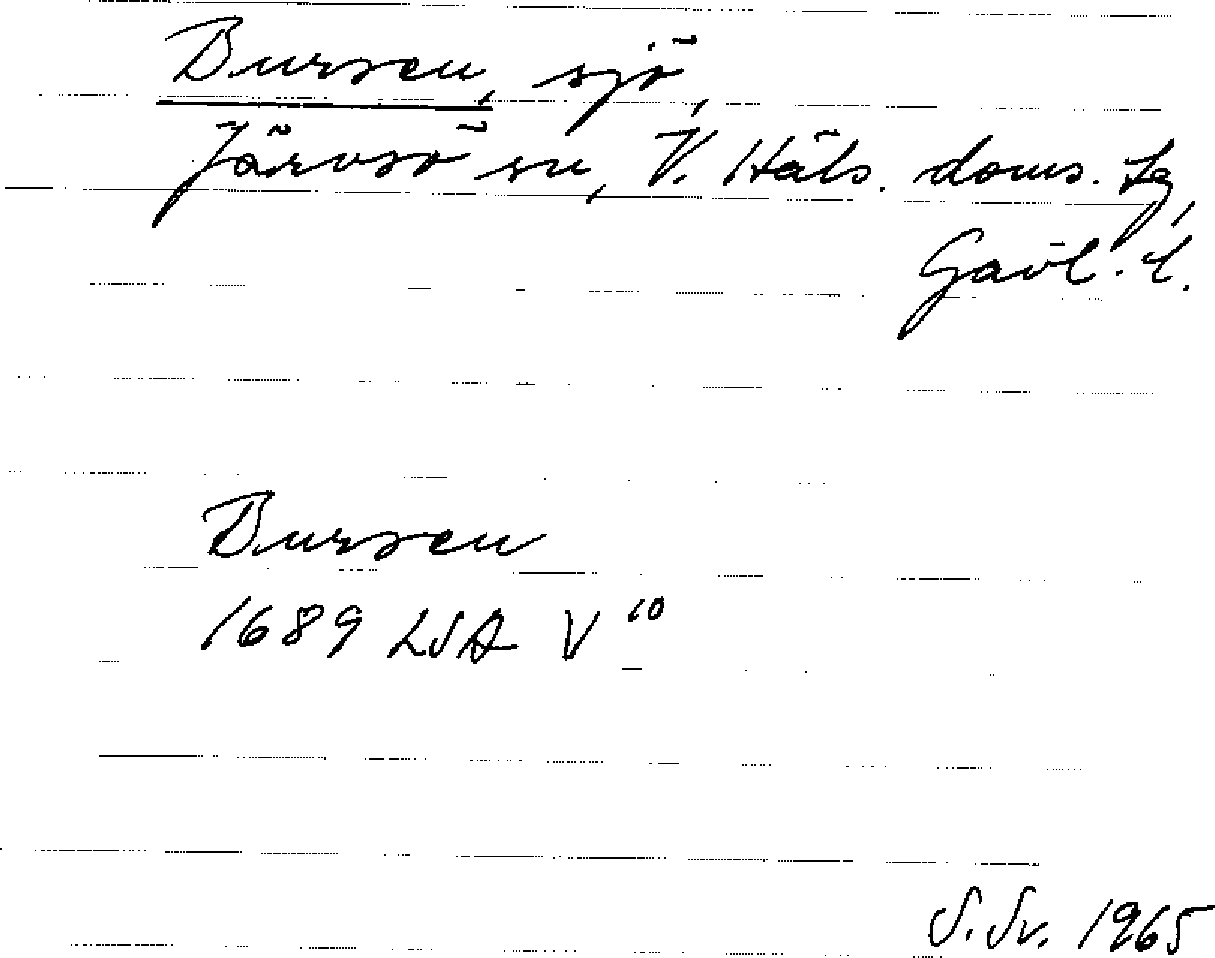 Bursen, sjö,
Järvsö sn, V. Häls. doms. tg,
Gävl. l.
Bursen
1689 LSA V 10
S. Sv. 1965